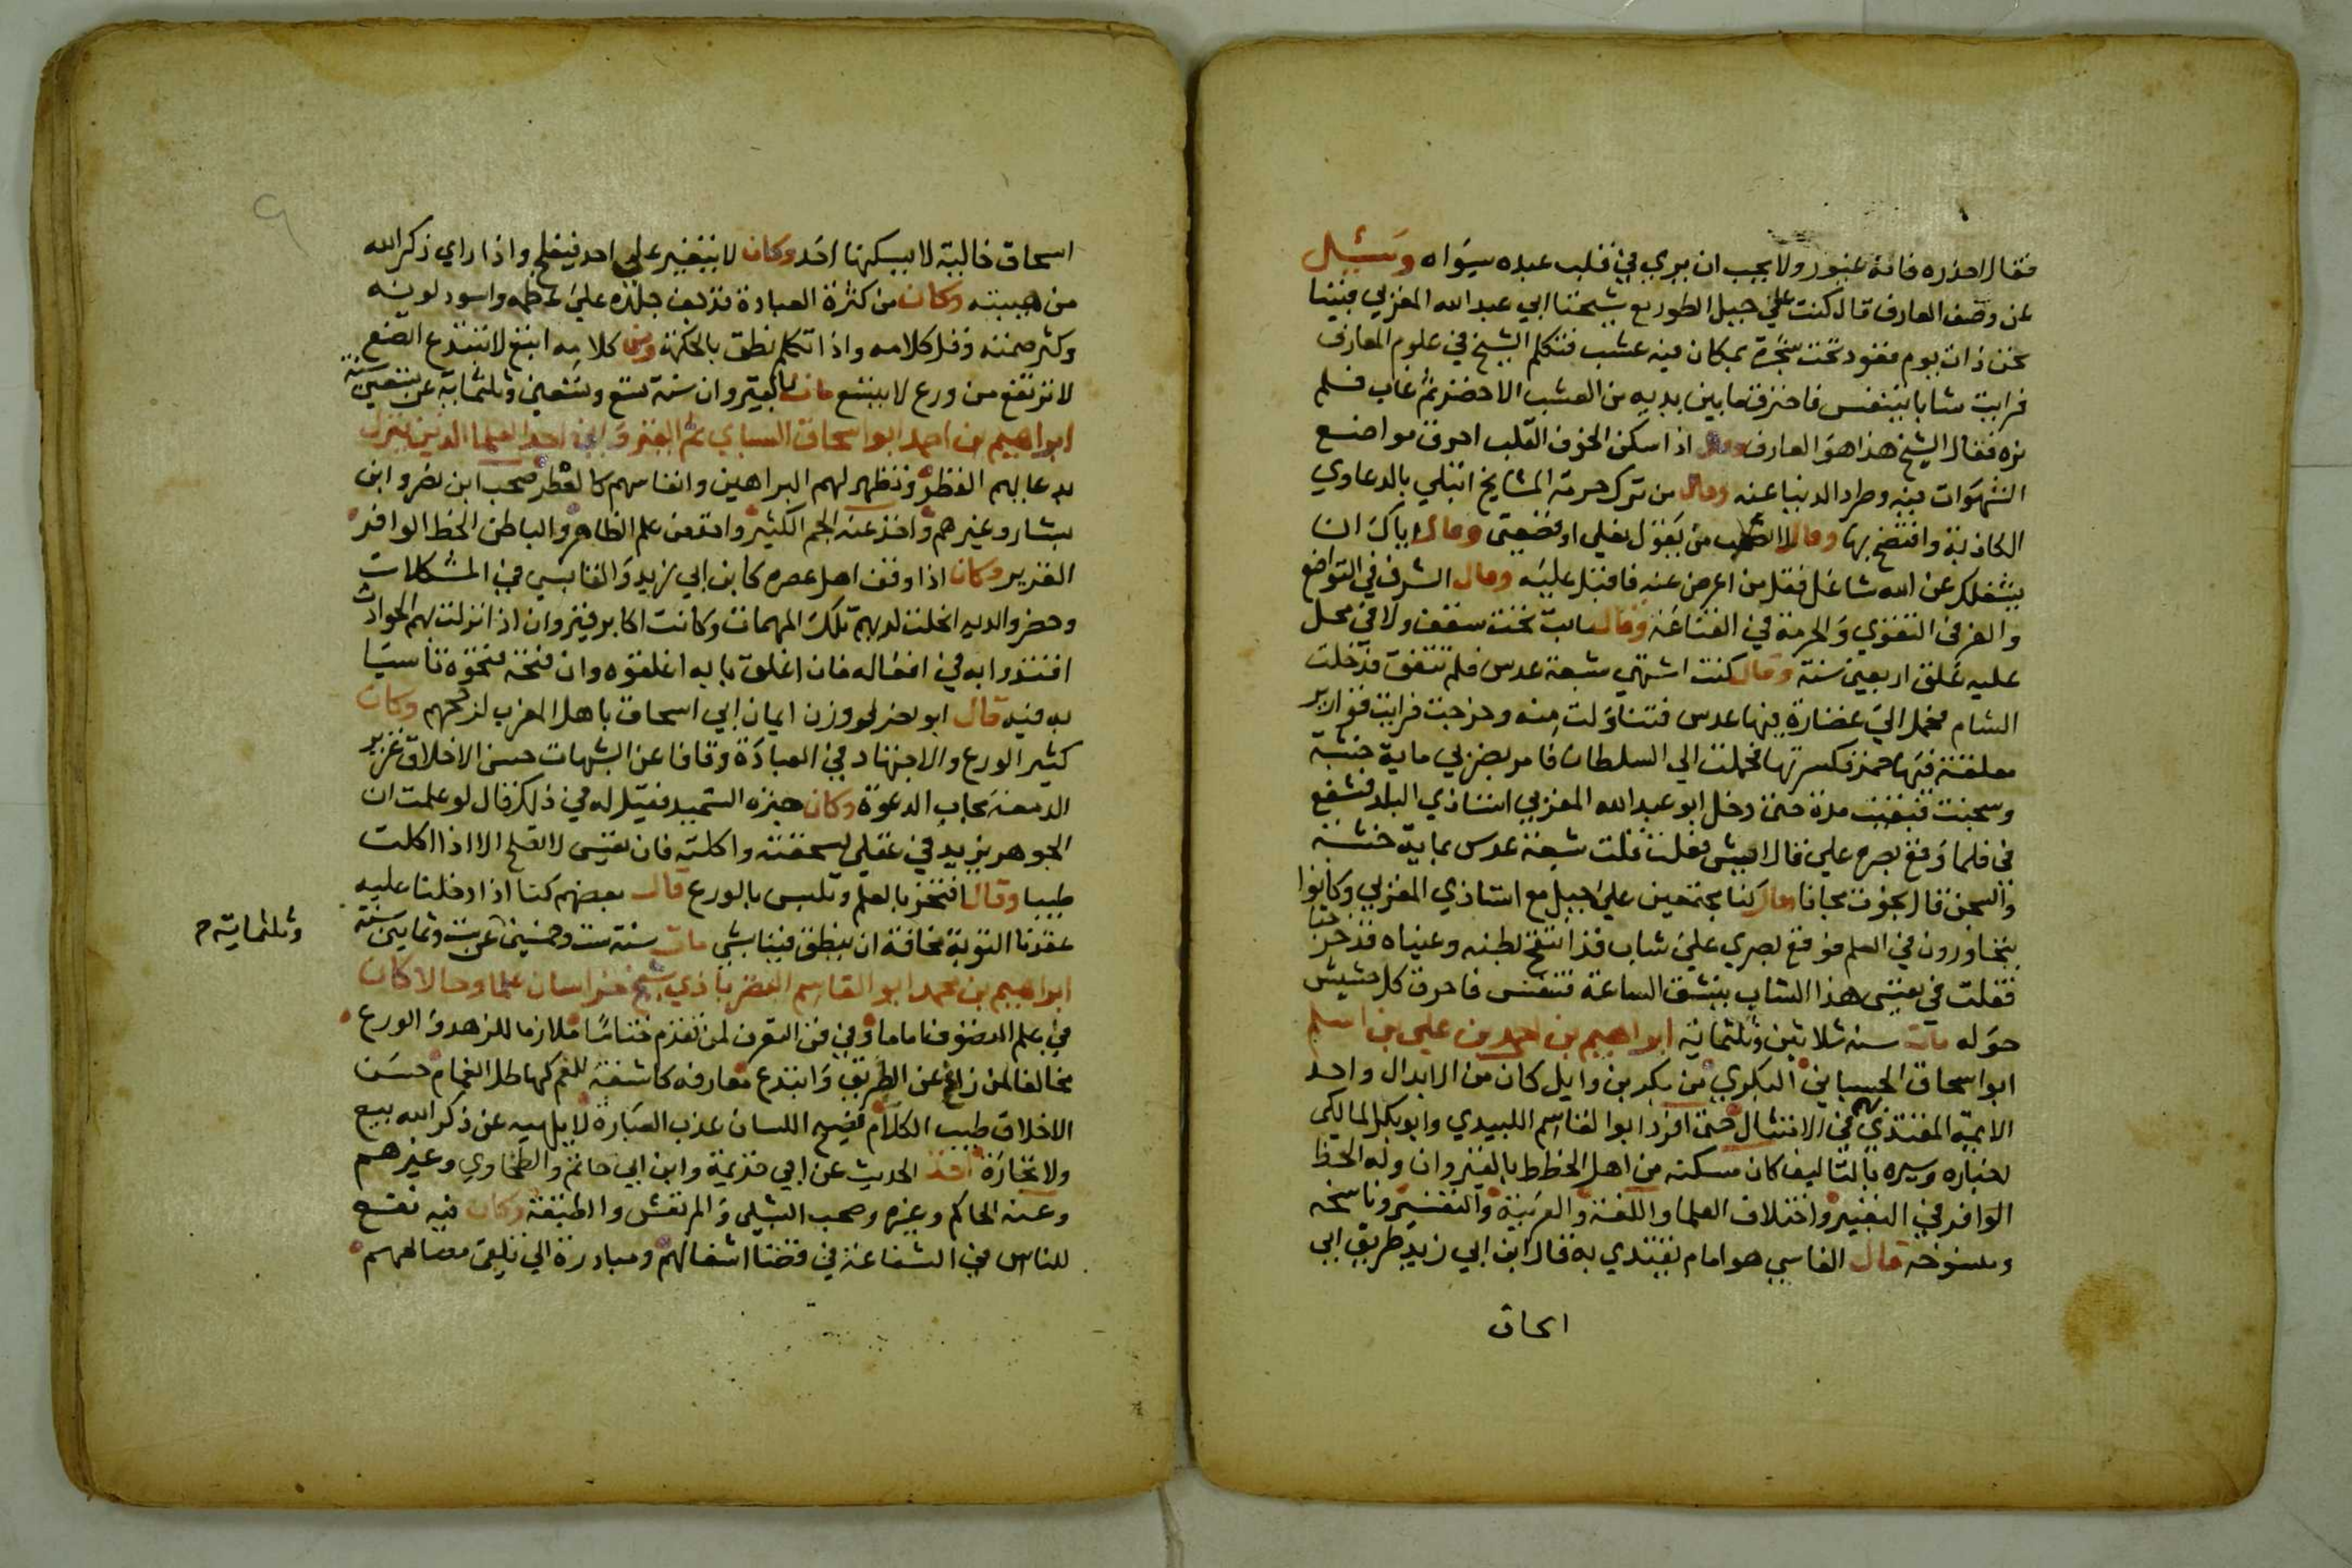 فقال احذره فانه غيور ولا يحب ان يري في قلب عبده سواه وسئل
عن وصف العارف قال كنت علي جبل الطور مع شيخنا ابي عبد الله المغربي فبينا
نحن ذات يوم قعود تحت شجرة بمكان فيه عشب فتكلم الشيخ في علوم المعارف
فرايت شابا يتنفس فاحترق ما بين يديه من العشب الاخضر ثم غاب فلم
نره فقال الشيخ هذا هو العارف وقال اذا سكن الخوف القلب احرق مواضع
الشهوات فيه وطرد الدنيا عنه وقال من ترك حرمة المشايخ ابتلي بالدعاوي
الكاذبة وافتضح بها وقال لا تصحب من يقول نعلي او قصعتي وقال اياك ان
يشغلك عن الله شاغل فقل من اعرض عنه فاقبل عليه وقال الشرف في التواضع
والعز في التقوي والحرية في القناعة وقال ما بت تحت سقف ولا في محل
عليه غلق اربعين سنة وقال كنت اشتهي شبعة عدس فلم تتفق فدخلت
الشام فحمل الي غضارة فيها عدس فتناولت منه وخرجت فرايت قوارير
معلقة فيها خمر فكسرتها فحملت الي السلطان فامر بضربي ماية خشبة
وسجنت فبقيت مدة حتي دخل ابو عبد الله المغربي استاذي البلد فشفع
في فلما وقع بصره علي قال ايش فعلت قلت شبعة عدس بماية خشبة
والسجن قال نجوت مجانا وقال كنا مجتمعين علي جبل مع استاذي المغربي وكانوا
يتحاورون في العلم فوقع بصري علي شاب قد انتفخ بطنه وعيناه قد خرجتا
فقلت في نفسي هذا الشاب ينشق الساعة فتنفس فاحرق كل حشيش
حوله مات سنة ثلاثين وثلثماية ابراهيم بن احمد بن علي بن اسلم
ابو اسحاق الجبنياني البكري من بكر بن وايل كان من الابدال واحد
الايمة المقتدي بهم في الامتثال حتي افرد ابو القاسم اللبيدي وابو بكر المالكي
اخباره وسيره بالتاليف كان مسكنه من اهل الخطط بالقيروان وله الحظ
الوافر في التعبير واختلاف العلما واللغة والعربية والتفسير وناسخه
ومنسوخه قال القابسي هو امام يقتدي به قال ابن ابي زيد طريق ابي
اسحاق
اسحاق خالية لا يسكنها احد وكان لا يتغير علي احد فيفلح واذا راي ذكر الله
من هيبته وكان من كثرة العبادة جلده علي عظمه واسود لونه
وكثر صمته وقل كلامه واذا تكلم نطق بالحكمة ومن كلامه اتبع لا تبتدع اتضع
لا ترتفع من ورع لا يتسع مات بالقيروان سنة تسع وستين وثلثماية عن تسعين سنة
ابراهيم بن احمد ابو اسحاق السباي ثم القيرواني احد العلما الذين ينزل
بدعايهم القطر وتظهر لهم البراهين وانفاسهم كالعطر صحب ابن نصر وابن
بشار وغيرهم واخذ عنه الجم الكثير واخذ من علم الظاهر والباطن الحظ الوافر
الغزير وكان اذا وقف اهل عصره كابن ابي زيد والقابسي في المشكلات
وحضروا لديه انحلت لديهم تلك المهمات وكانت اكابر قيروان اذا نزلت بهم الحوادث
اقتدوا به في افعاله فان اغلق بابه اغلقوه وان فتحه فتحوه تاسيا
به فيه قال ابو نصر لو وزن ايمان ابي اسحاق باهل المغرب لرجحهم وكان
كثير الورع والاجتهاد في العبادة وقافا عن الشبهات حسن الاخلاق غزير
الدمعة مجاب الدعوة وكان خبزه السميد فقيل له في ذلك فقال لو علمت ان
الجوهر يزيد في عقلي لسحقته واكلته فان نفسي لا تصلح الا اذا اكلت
طيبا وقال افتخر بالعلم وتلبس بالورع قال بعضهم كنا اذا دخلنا عليه
عقدنا التوبة مخافة ان ينطق فينا بشي مات سنة ست وخمسين عن ست وثمانين سنة
وثلثماية ح
ابراهيم بن محمد ابو القاسم النصراباذي شيخ خراسان علما وحالا كان
في علم التصوف اماما وفي فن التعرف لمن تقدم ختاما ملازما للزهد والورع
مخالفا لمن زاغ عن الطريق وابتدع معارفه كاشفة للغم كهاطل الغمام حسن
الاخلاق طيب الكلام فصيح اللسان عذب العبارة لا يلهيه عن ذكر الله بيع
ولا تجارة اخذ الحديث عن ابي خزيمة وابن ابي حاتم والطحاوي وغيرهم
وعنه الحاكم وغيره وصحب الشبلي والمرتعش والطبقة وكان فيه نفع
للناس في الشفاعة في قضا اشغالهم ومبادرة الي مصالحهم